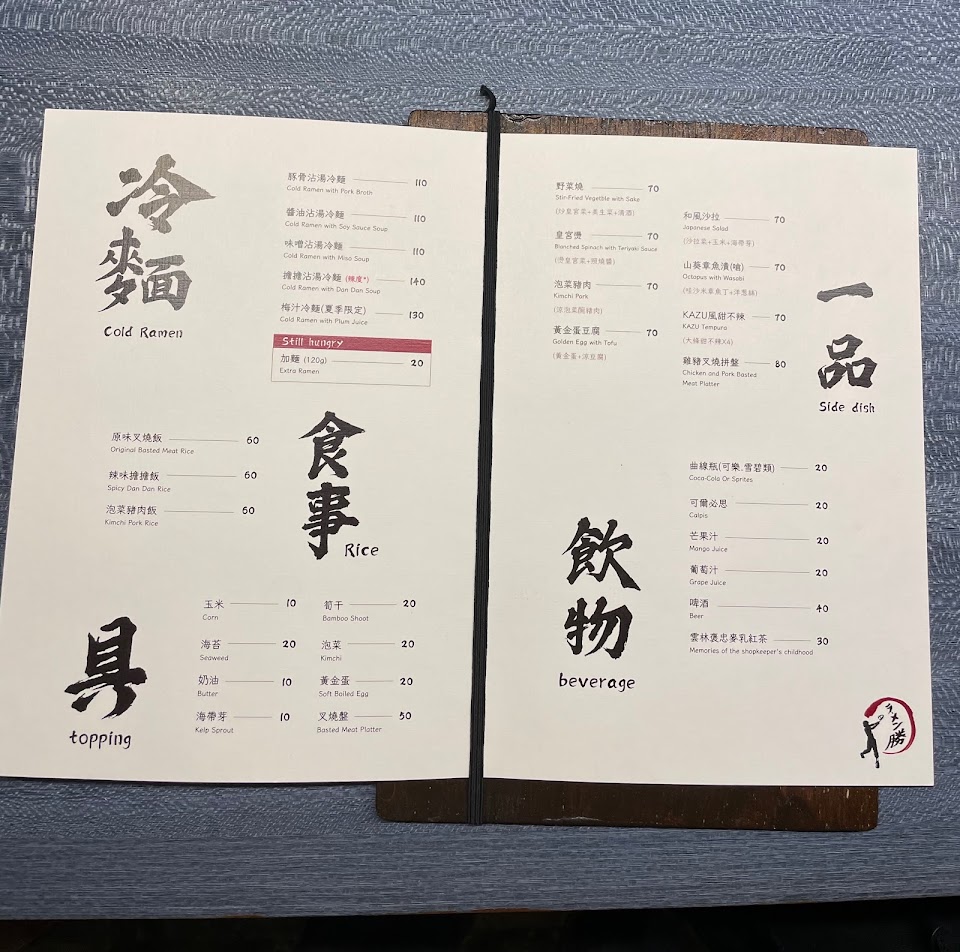 冷麵
Cold Ramen
豚骨沾湯冷麵 110
Cold Ramen with Pork Broth
醬油沾湯冷麵 110
Cold Ramen with Soy Sauce Soup
味噌沾湯冷麵 110
Cold Ramen with Miso Soup
擔擔沾湯冷麵 (辣度*) 140
Cold Ramen with Dan Dan Soup
梅汁冷麵(夏季限定) 130
Cold Ramen with Plum Juice
Still hungry
加麵 (120g) 20
Extra Ramen
食事
Rice
原味叉燒飯 60
Original Basted Meat Rice
辣味擔擔飯 60
Spicy Dan Dan Rice
泡菜豬肉飯 60
Kimchi Pork Rice
具
topping
玉米 10
Corn
海苔 20
Seaweed
奶油 10
Butter
海帶芽 10
Kelp Sprout
筍干 20
Bamboo Shoot
泡菜 20
Kimchi
黃金蛋 20
Soft Boiled Egg
叉燒盤 50
Basted Meat Platter
一品
Side dish
野菜燒 70
Stir-Fried Vegetble with Sake
(炒皇宮菜+美生菜+清酒)
皇宮燙 70
Blanched Spinach with Teriyaki Sauce
(燙皇宮菜+照燒醬)
泡菜豬肉 70
Kimchi Pork
(涼泡菜關豬肉)
黃金蛋豆腐 70
Golden Egg with Tofu
(黃金蛋+涼豆腐)
和風沙拉 70
Japanese Salad
(沙拉菜+玉米+海帶芽)
山葵章魚漬(嗆) 70
Octopus with Wasabi
(哇沙米章魚丁+洋蔥絲)
KAZU風甜不辣 70
KAZU Tempura
(大條甜不辣X4)
雞豬叉燒拼盤 80
Chicken and Pork Basted
Meat Platter
飲物
beverage
曲線瓶(可樂.雪碧類) 20
Coca-Cola Or Sprites
可爾必思 20
Calpis
芒果汁 20
Mango Juice
葡萄汁 20
Grape Juice
啤酒 40
Beer
雲林褒忠麥乳紅茶 30
Memories of the shopkeeper's childhood
ラーメン勝